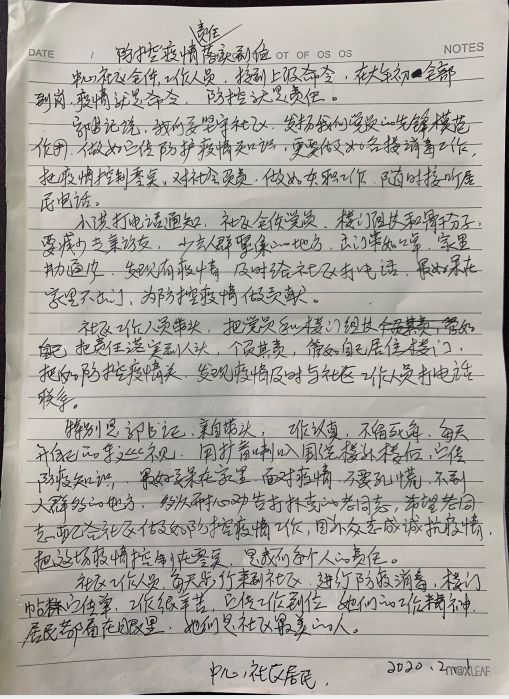 责任
防控疫情落实到位
DATE / OT OF OS OS NOTES
中心社区全体工作人员,接到上级命令,在大年初一全部
到岗,疫情就是命令,防控就是责任。
郭书记说,我们要坚守社区,发扬我们党员的先锋模范
作用,做好宣传防护疫情知识,更要做好各楼消毒工作,
把疫情控制零实,对社会负责,做好本职工作,随时接听居
民电话。
小洪打电话通知,社区全体党员,楼门组长和骨干分子,
要减少走亲访友,少去人群聚集的地方,出门带好口罩,室里
勤通风,发现有疫情,及时给社区打电话,最好呆在
家里不出门,为防控疫情做贡献。
社区工作人员带头,把党员和楼门组长
把责任落实到人头,个负其责,管好自己居住楼门,
把好防控疫情关,发现疫情及时与社区工作人员打电话
联系。
特别是郭书记,亲自带头,工作认真,不留死角,每天
用扩音喇叭围绕楼前楼后,宣传
防疫知识,最好呆在家里,面对疫情,不要乱慌,不到
人群多的地方,多次耐心劝告打扑克的老同志,希望老同
志配合社区做好防控疫情工作,用众志成诚抗疫情,
把这场疫情控制在零实,是我们每个人的责任。
社区工作人员,每天步行来到社区,进行防疫消毒,楼门
帖宣传单,工作很辛苦,宣传工作到位,她们的工作精神,
居民都看在眼里,她们是社区最美的人。
中心社区居民,
2020.2.
m@XLEAF